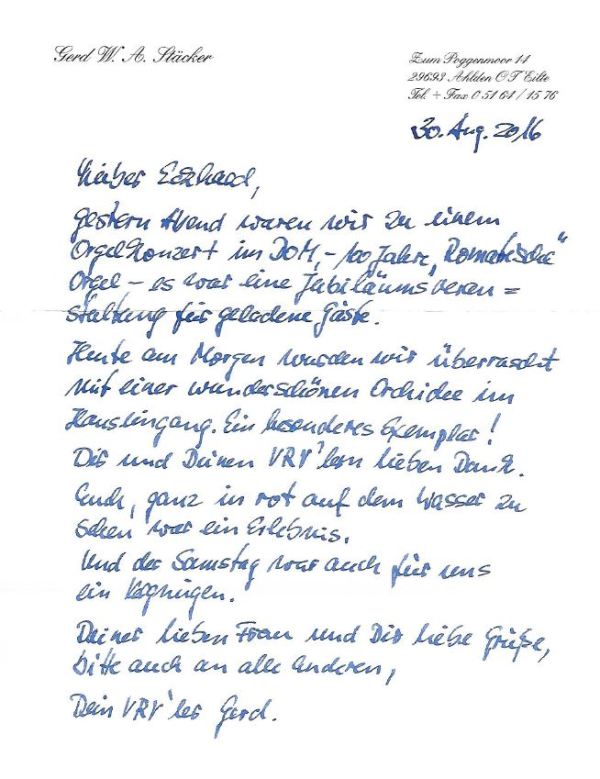 Gerd W. A. Stäcker
Zum Poggenmoor 14
29693 Ahlden OT Eilte
Tel. + Fax 0 51 64 / 15 76
30. Aug. 2016
Lieber Eckhard,
gestern Abend waren wir zu einem
Orgelkonzert im DOM, - 100 Jahre „Romantische“
Orgel - es war eine Jubiläumsveran =
staltung für geladene Gäste.
Heute am Morgen wurden wir überrascht
mit einer wunderschönen Orchidee im
Hauseingang. Ein besonderes Exemplar!
Dir und Deinen VRV'lern lieben Dank.
Euch, ganz in rot auf dem Wasser zu
sehen war ein Erlebnis.
Und der Samstag war auch für uns
ein Vergnügen.
Deiner lieben Frau und Dir liebe Grüße,
bitte auch an alle Anderen,
Dein VRV'ler Gerd.